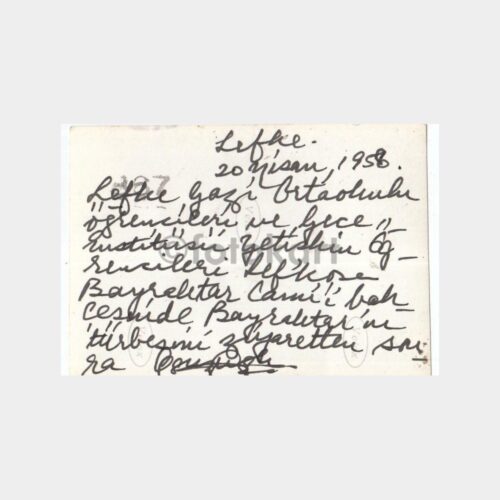 Lefke.
20 Nisan, 1958.
Lefke Gazi Ortaokulu
öğrencileri ve Gece
Enstitüsü Yetişkin Öğ-
rencileri Lefkoşa
Bayraktar Camii bah
çesinde Bayraktar'ın
türbesini ziyaretten son-
ra
497
©fotokart